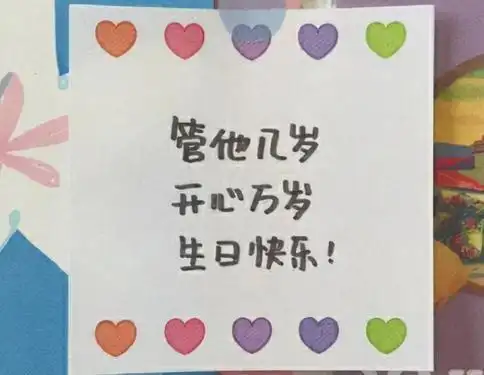 管他几岁
开心万岁
生日快乐！